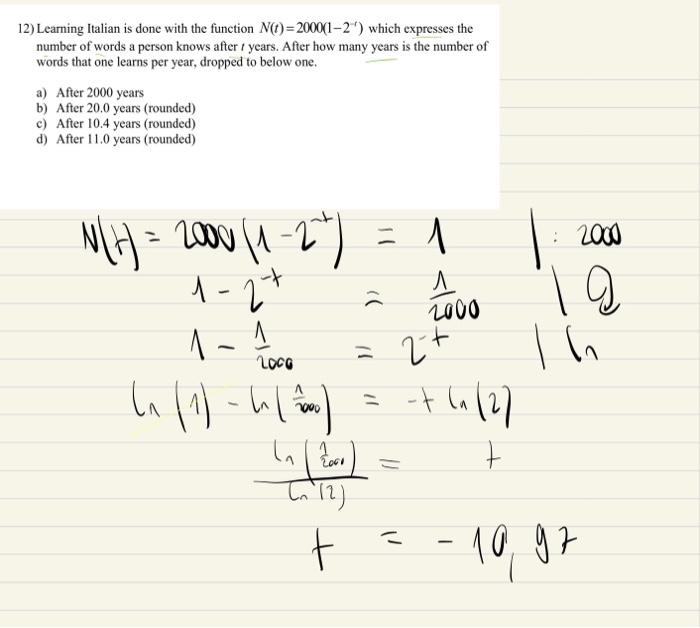 12) Learning Italian is done with the function N(t)=2000(1−2⁻ᵗ) which expresses the
number of words a person knows after t years. After how many years is the number of
words that one learns per year, dropped to below one.
a) After 2000 years
b) After 20.0 years (rounded)
c) After 10.4 years (rounded)
d) After 11.0 years (rounded)
N(t) = 2000 (1 - 2⁻ᵗ) = 1 | : 2000
1 - 2⁻ᵗ = 1/2000 |
1 - 1/2000 = 2⁻ᵗ | ln
ln (1) - ln (1/2000) = -t ln (2)
ln (1/2000) / ln (2) = t
t = - 10,97